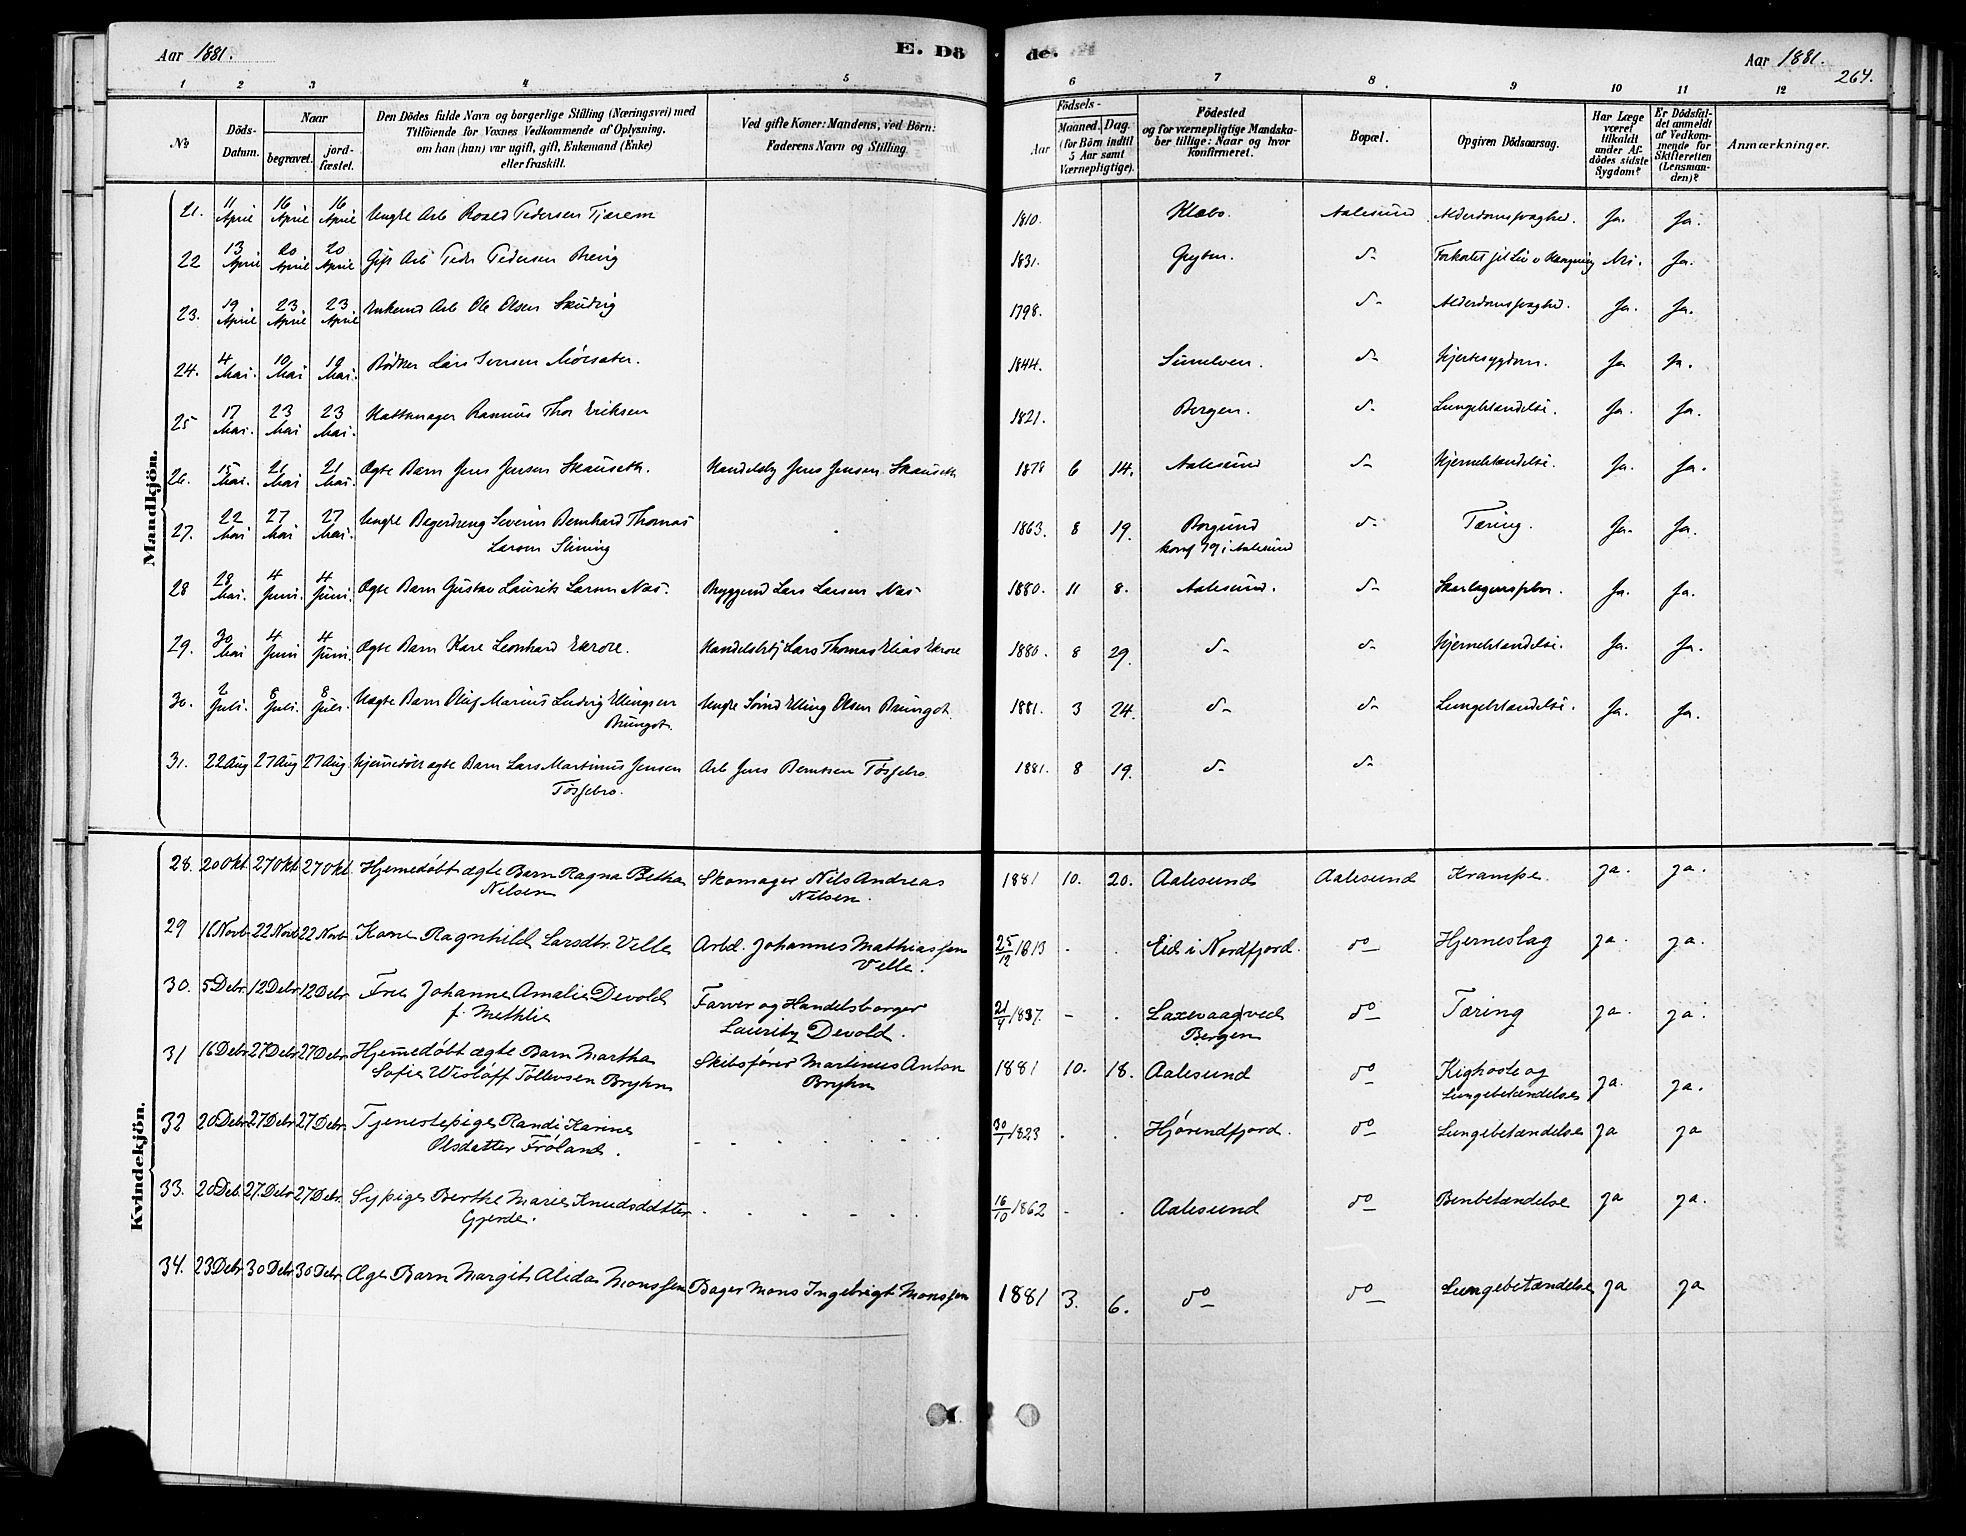 Aar 1881. E. Dö de. Aar 1881.
264.
1 2 3 4 5 6 7 8 9 10 11 12
№ Döds-Datum. Naar begravet. jordfæstet. Den Dödes fulde Navn og borgerlige Stilling (Næringsvei) med Tilföiende for Voxnes Vedkommende af Oplysning, om han (hun) var ugift, gift, Enkemand (Enke) eller fraskilt. Ved gifte Koner: Mandens, ved Börn: Faderens Navn og Stilling. Födsels- Aar Maaned. Dag. (for Börn indtil 5 Aar samt Værnepligtige). Födested og for værnepligtige Mandskaber tillige: Naar og hvor konfirmeret. Bopæl. Opgiven Dödsaarsag. Har Læge været tilkaldt under Afdödes sidste Sygdom? Er Dödsfaldet anmeldt af Vedkommende for Skifteretten (Lensmanden)? Anmærkninger.
Mandkjön.
21. 11 April 16 April 16 April Ungkr Arb Roald Pedersen Tjærem 1810. Klæbo. Aalesund Alderdomssvaghed. Ja. Ja.
22 13 April 20 April 20 April Gift Arb Peder Pedersen Brevig 1831. Gryten. do Nei. Ja.
23. 19 April 23 April 23 April Enkemd Arb Ole Olsen 1798. do Alderdomssvaghed. Ja. Ja.
24. 4 Mai. 10 Mai 10 Mai. Bödker Lars Iversen 1844. Sunelven. do Hjertesygdom. Ja Ja.
25 17 Mai. 23 Mai 23 Mai. Hattemager Rasmus Thor Eriksen 1821. Bergen. do Lungebetændelse. Ja. Ja.
26. 15 Mai. 21 Mai 21 Mai. Ægte Barn Jens Jensen Skauseth. Handelsbg Jens Jensen Skauseth 1878 6 14. Aalesund do Hjernebetændelse. Ja. Ja.
27. 22 Mai 27 Mai 27 Mai. Ungkr Severin Bernhard Thomas
Larsen Slining 1863. 8 19. Borgund
konf 79 i Aalesund do Tæring. Ja. Ja.
28 28 Mai. 4 Juni. 4 Juni. Ægte Barn Gustav Laurits Larsen Næs. Bryggemd Lars Larsen Næs 1880. 11 8. Aalesund. do Skarlagensfeber. Ja. Ja.
29. 30 Mai 4 Juni 4 Juni. Ægte Barn Kare Leonhard Ekrore. Lars Thomas Elias Ekrore 1880. 8 29. do do Hjernebetændelse. Ja. Ja.
30. 2 Juli. 8 Juli. 8 Juli. Uægte Barn Oluf Marius Ludvig Ellingsen
Brungot. Ungkr Elling Olsen Brungot. 1881. 3 24. do do Lungebetændelse. Ja. Ja.
31. 22 Aug 27 Aug 27 Aug. Hjemmedøbt ægte Barn Lars Martinus Jensen
Tösfebro. Arb Jens Berntsen Tösfebro. 1881. 8 19. do do
Kvindekjön.
28. 20 Okt. 27 Okt 27 Okt. Hjemmedøbt ægte Barn Ragna Betha
Nilsen Skomager Nils Andreas
Nilsen. 1881 10. 20. Aalesund Aalesund Krampe. ja. ja.
29 16 Novb 22 Novb 22 Novb Kone Ragnhild Larsdtr. Velle Arbd. Johannes Mathiassen
Velle. 25/12 1813 - . Eid i Nordfjord. do Hjerneslag ja. ja.
30. 5 Debr 12 Debr 12 Debr Fru Johanne Amalie Devold
f. Methlie Farver og Handelsborger
Lauritz Devold. 21/4 1837. - . Laxevaag ved
Bergen do Tæring ja. ja.
31 16 Debr 27 Debr 27 Debr. Hjemmedøbt ægte Barn Martha
Sofie Wisløff Tollevsen Bryhn Skibsfører Martinus Anton
Bryhn 1881 10. 18. Aalesund do Kighoste og
Lungebetændelse ja. ja.
32 20 Debr. 27 Debr 27 Debr. Tjenestepige Randi Karine
Olsdatter Frøland. - - - - 30/1 1823 . . Hjørendfjord. do Lungebetændelse ja ja
33. 20 Deb. 27 Debr 27 Debr. Sypige Berthe Marie Knudsdatter
Gjerde. - - - - 16/10 1862 - . Aalesund do Benbetændelse ja ja.
34. 23 Debr 30 Debr 30 Debr. Ægte Barn Margit Alida Monssen Bager Mons Ingebrigt Monssen 1881 3. 6. do do Lungebetændelse ja ja